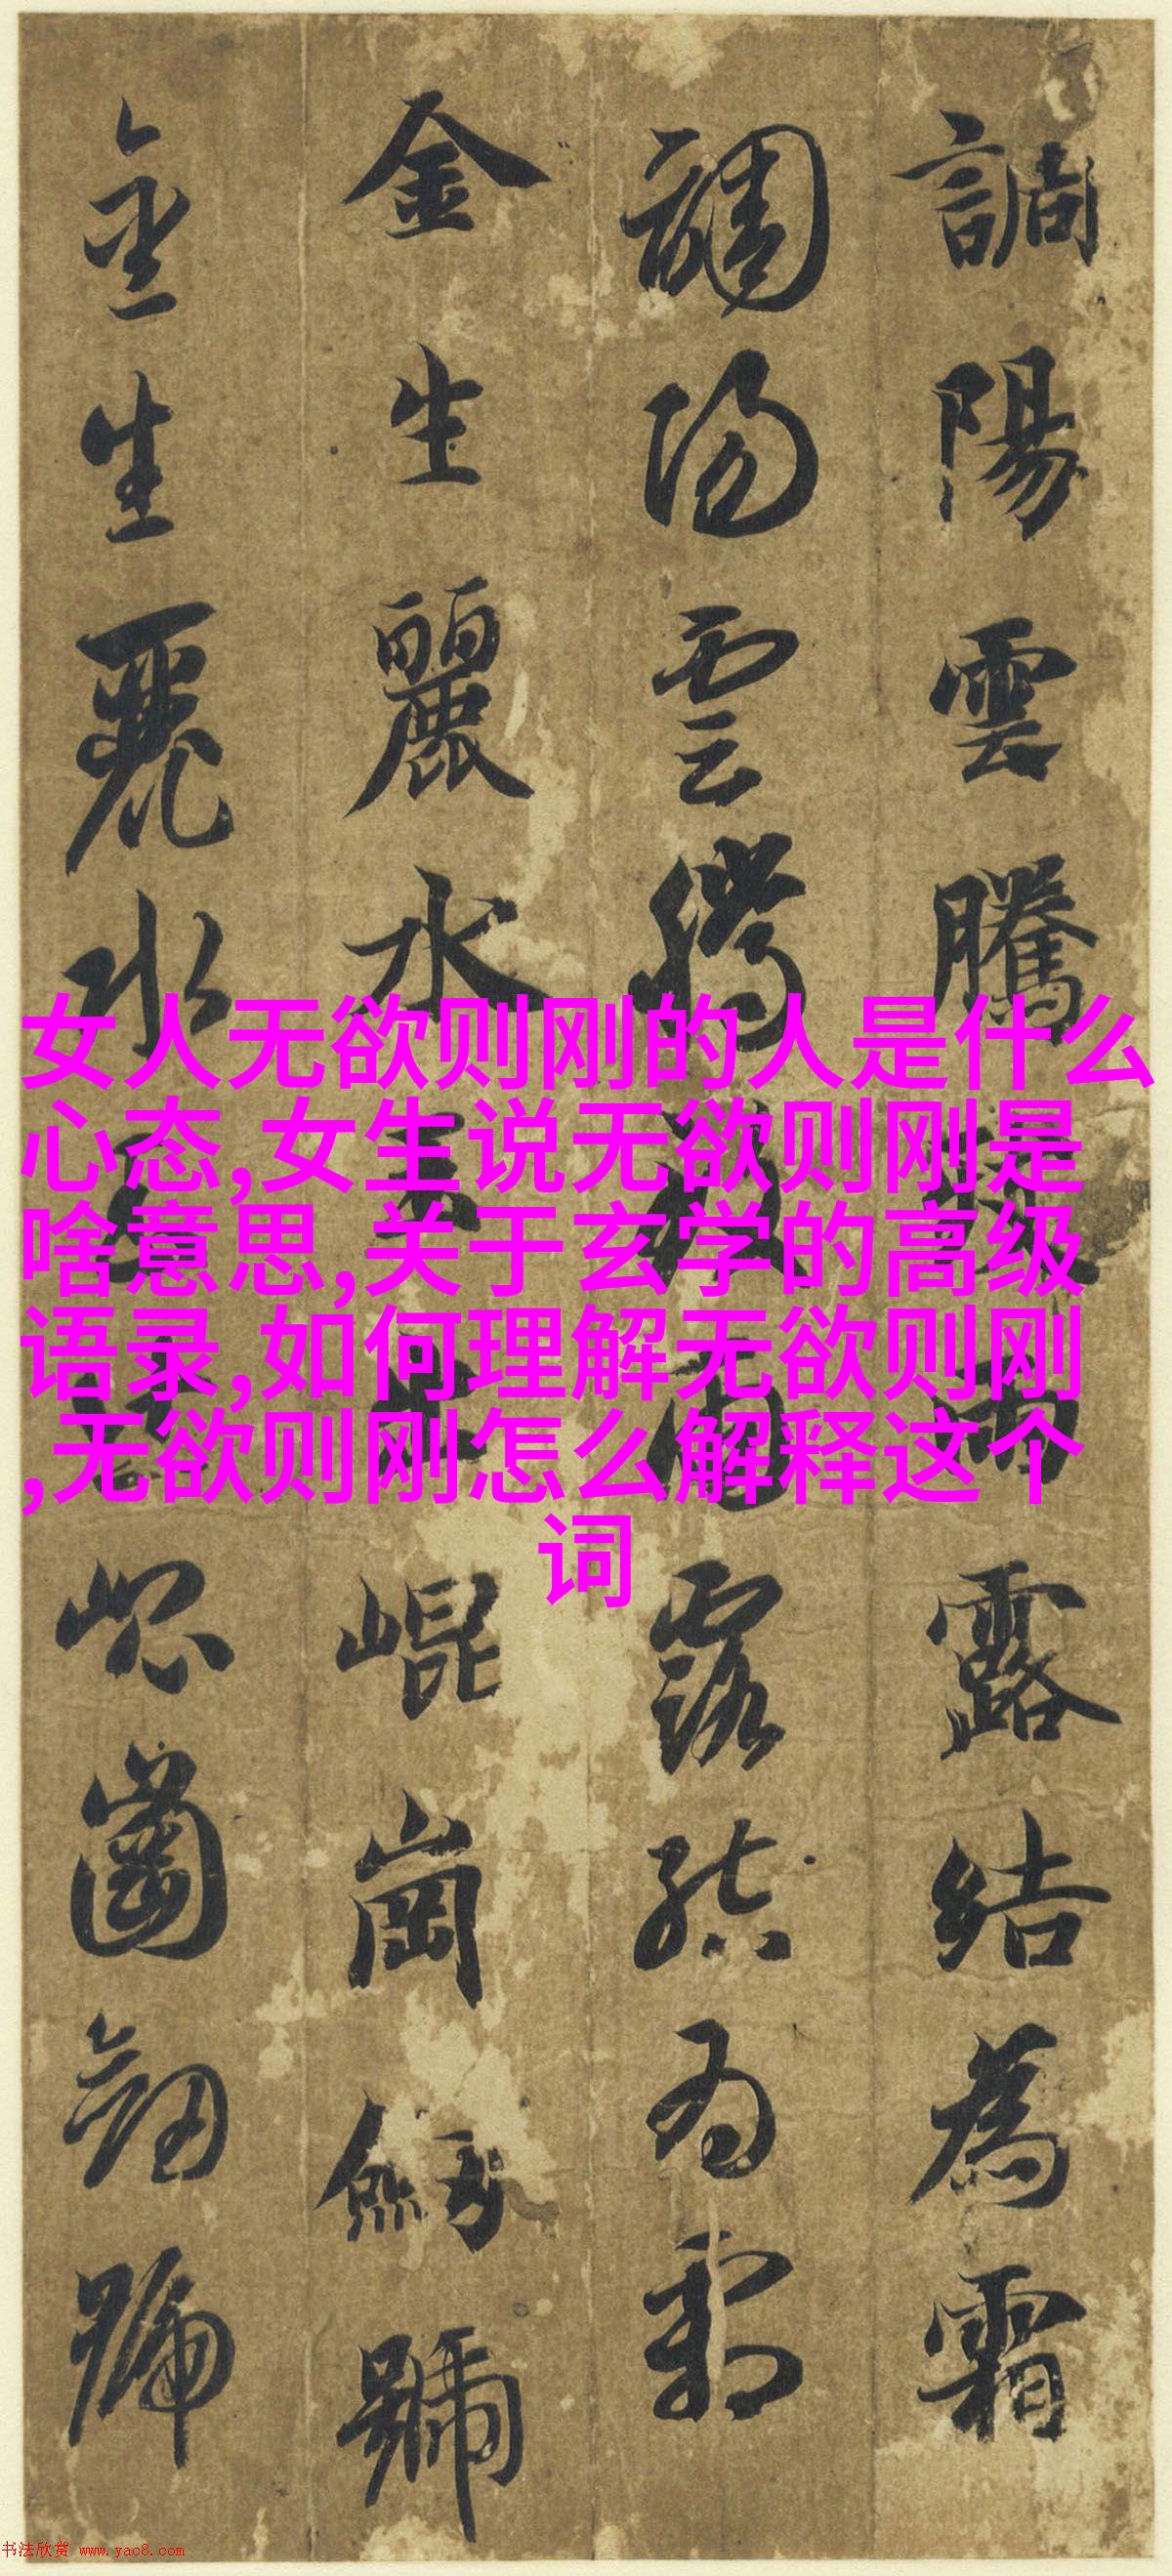 調陽雲騰露結為霜
調陽雲騰露結為霜
金生麗水崐崗劔號
金生麗水崐崗劔號
女人无欲则刚的人是什么
心态,女生说无欲则刚是
啥意思,关于玄学的高级
语录,如何理解无欲则刚
,无欲则刚怎么解释这个
词
书法欣赏 www.yac8.com